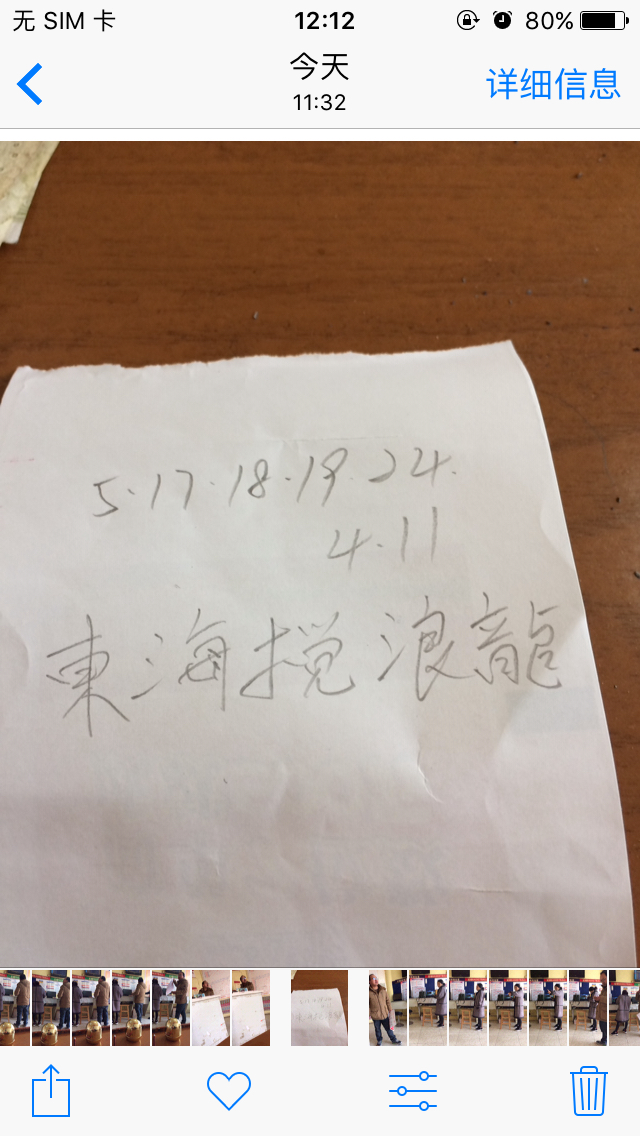 无 SIM 卡 12:12 80%
今天
11:32
详细信息
5·17·18·19·24·
4·11
東海搅浪龍